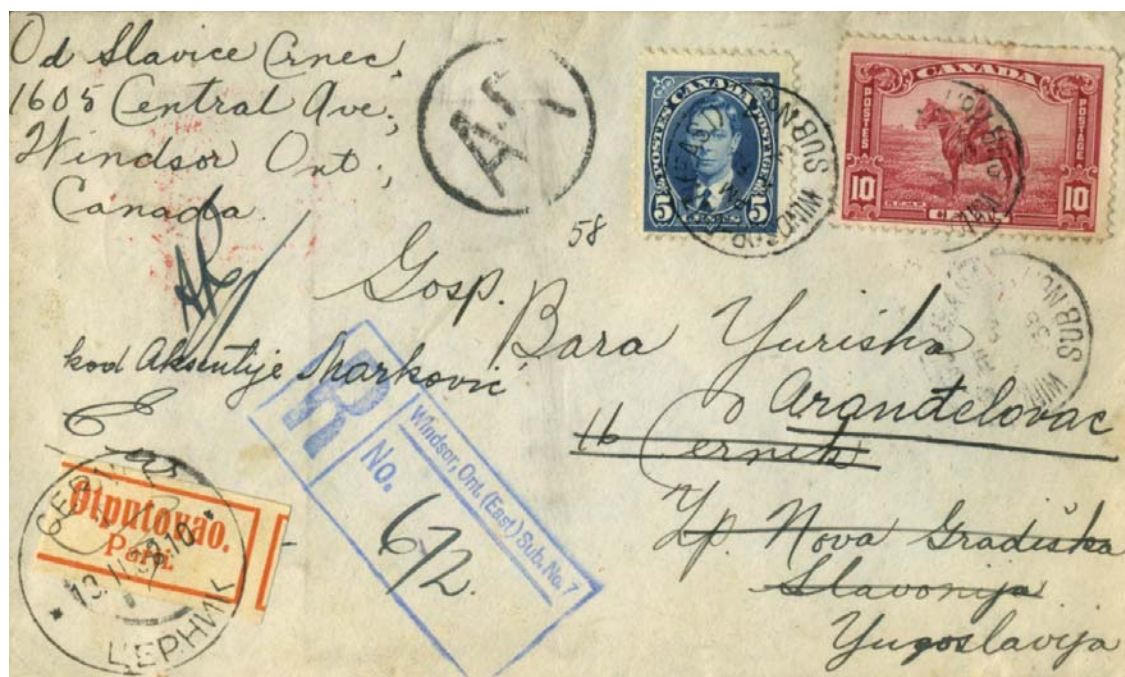 Od Slavice Crnec,
1605 Central Ave,
Windsor Ont.,
Canada.
AR
58
POSTES CANADA POSTAGE
5 CENTS 5
CANADA
POSTES POSTAGE
10 10
R.C.M.P.
SUB NO
WINDSOR
SUB NO
AR
Gosp.
Bara Yuriska
kod Aksentije Marković
Aranđelovac
16 Cernik
Zp. Nova Gradiška
Slavonija
Yugoslavija
R
Windsor, Ont. (East) Sub. No. 7
No.
672.
Otputovao.
Parti
ЦЕРНИК